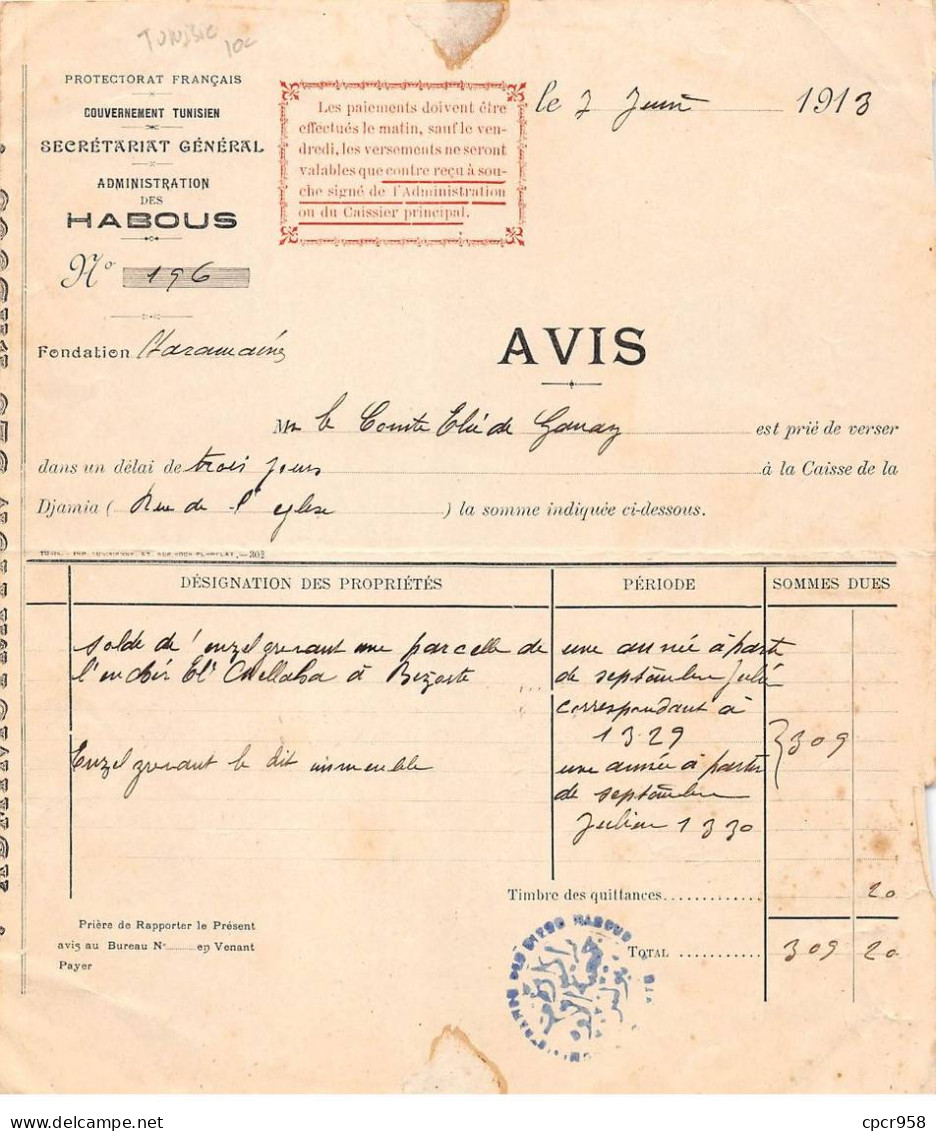 TUNISIE
10c
PROTECTORAT FRANÇAIS
GOUVERNEMENT TUNISIEN
SECRÉTARIAT GÉNÉRAL
ADMINISTRATION
DES
HABOUS
Nº 196
Les paiements doivent être
effectués le matin, sauf le ven-
dredi, les versements ne seront
valables que contre reçu à sou-
che signé de l'Administration
ou du Caissier principal.
le 7 Juin 1913
Fondation Haramaïns
AVIS
Mr le Comte Elie de Ganay est prié de verser
dans un délai de trois jours à la Caisse de la
Djamia ( Rue de l'église ) la somme indiquée ci-dessous.
DÉSIGNATION DES PROPRIÉTÉS PÉRIODE SOMMES DUES
solde de l'enzel grevant une parcelle de
l'enchir El à Bizerte
une année à partir
de septembre Julien
correspondant à
1329
Enzel grevant le dit immeuble
une année à partir
de septembre
Julien 1330
309
Timbre des quittances 20
TOTAL 309 20
Prière de Rapporter le Présent
avis au Bureau Nº en Venant
Payer
cpcr958